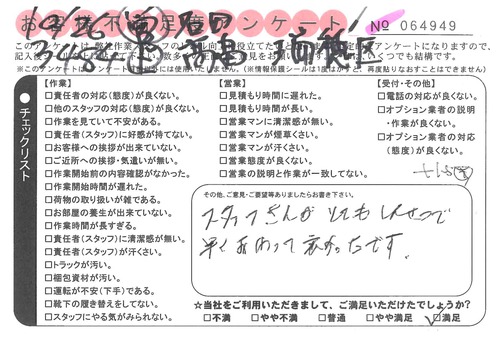 お客様不満足度アンケート
№ 064949
このアンケートは、弊社作業
記入後
※このアンケートは
(※情報保護シールは1度はがすと、再度貼りなおすことはできません)
チェックリスト
【作業】
□責任者の対応(態度)が良くない。
□他のスタッフの対応(態度)が良くない。
□作業を見ていて不安がある。
□責任者(スタッフ)に好感が持てない。
□お客様への挨拶が出来ていない。
□ご近所への挨拶・気遣いが無い。
□作業開始前の内容確認がなかった。
□作業開始時間が遅れた。
□荷物の取り扱いが雑である。
□お部屋の養生が出来ていない。
□作業時間が長すぎる。
□責任者(スタッフ)に清潔感が無い。
□責任者(スタッフ)が汗くさい。
□トラックが汚い。
□梱包資材が汚い。
□運転が不安(下手)である。
□靴下の履き替えをしてない。
□スタッフにやる気がみられない。
【営業】
□見積もり時間に遅れた。
□見積もり時間が長い。
□営業マンに清潔感が無い。
□営業マンが煙草くさい。
□営業マンが汗くさい。
□営業態度が良くない。
□営業の説明と作業が一致してない。
【受付・その他】
□電話の対応が良くない。
□オプション業者の説明
・作業が良くない。
□オプション業者の対応
(態度)が良くない。
その他、ご意見・ご要望等ありましたらお書き下さい。
スタッフさんが とても しんせつで
早く おわって 良かったです。
☆当社をご利用いただきまして、ご満足いただけたでしょうか?
□不満 □やや不満 □普通 □やや満足 □満足